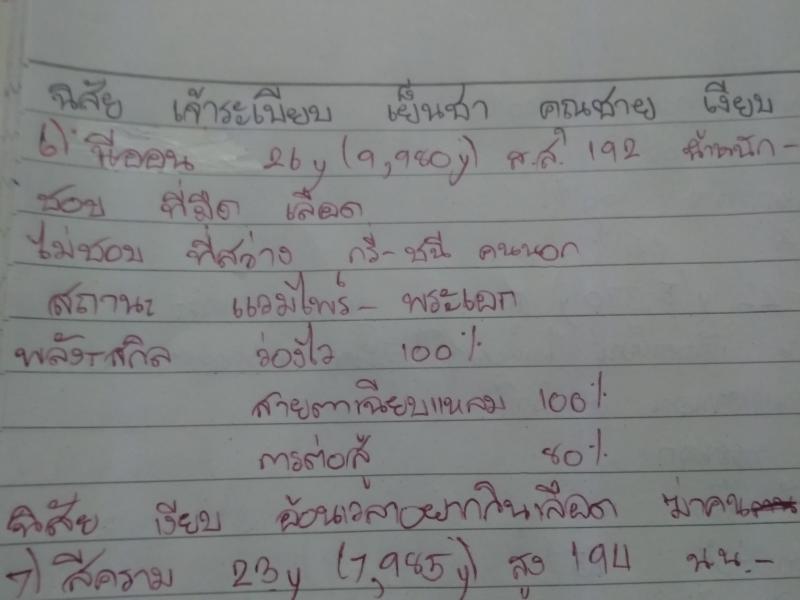 นิสัย เจ้าระเบียบ เย็นชา คุณชาย เงียบ
6) นีออน 26y (9,980y) ส.ส. 192 น้ำหนัก -
ชอบ ที่มืด เลือด
ไม่ชอบ ที่สว่าง กรี-ชนี คนนอก
สถานะ แวมไพร์ - พระเอก
พลัง-สกิล ว่องไว 100%
สายตาเฉียบแหลม 100%
การต่อสู้ 80%
นิสัย เงียบ อ้อนเวลาอยากกินเลือด ฆ่าคน
7) สีคราม 23y (7,985y) สูง 194 นน. -